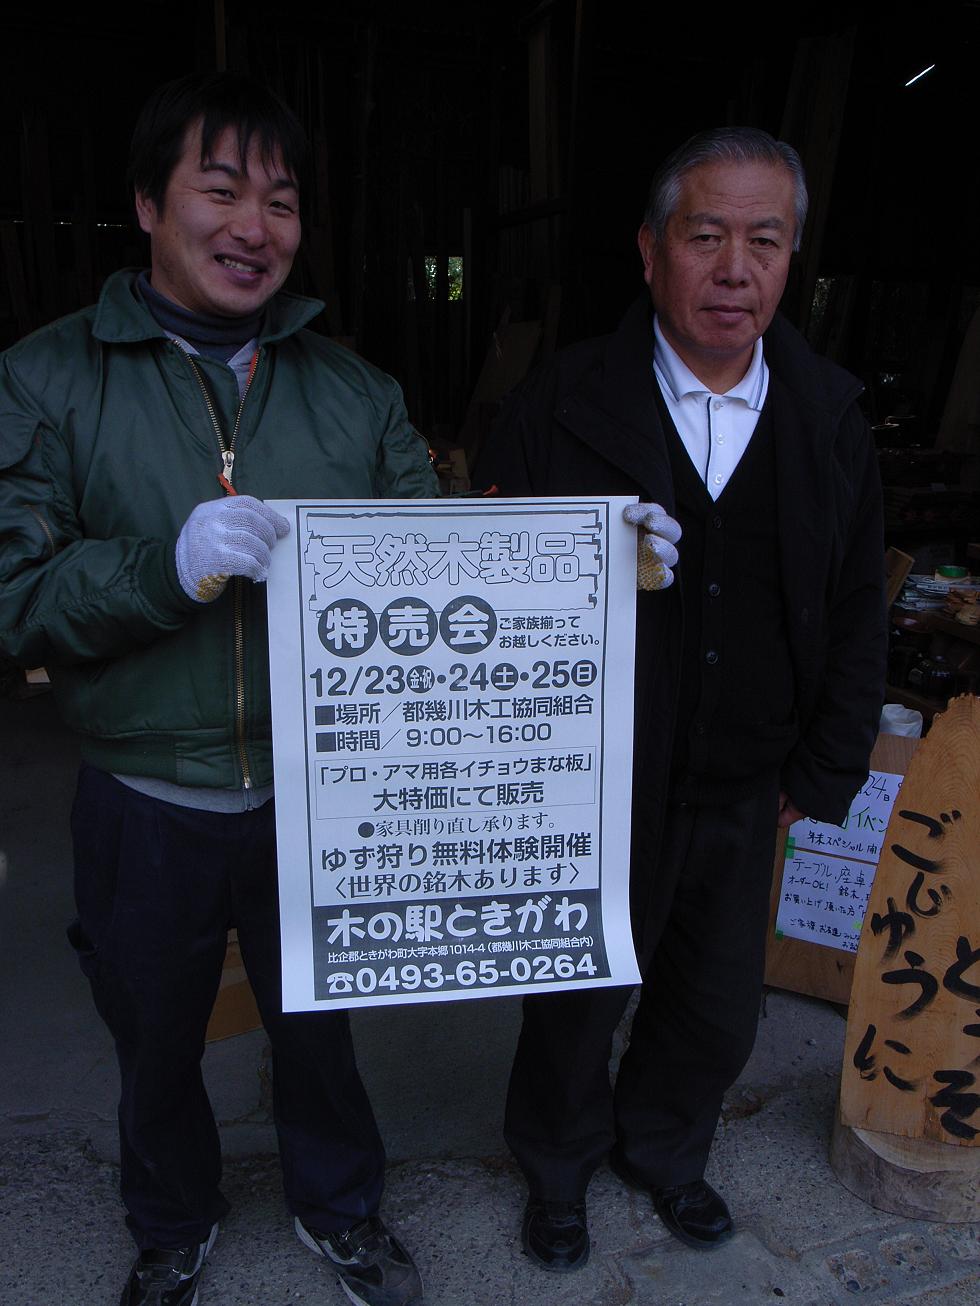 天然木製品
特売会 ご家族揃って
お越しください。
12/23金・祝・24土・25日
■場所／都幾川木工協同組合
■時間／9:00〜16:00
「プロ・アマ用各イチョウまな板」
大特価にて販売
●家具削り直し承ります。
ゆず狩り無料体験開催
〈世界の銘木あります〉
木の駅ときがわ
比企郡ときがわ町大字本郷1014-4(都幾川木工協同組合内)
☎0493-65-0264
24日
イベン
年末スペシャル
テーブル、座卓
オーダーOK! 銘木
お買い上げ頂いた方
ご家族、お友達
ごじゆうに
どうぞ